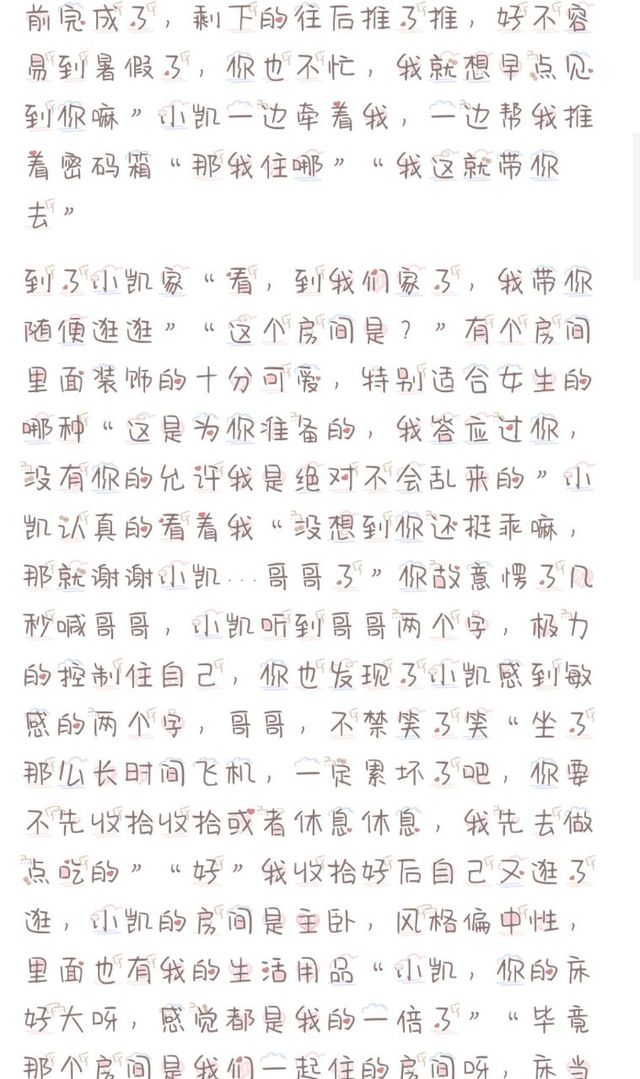 前完成了，剩下的往后推了推，好不容
易到暑假了，你也不忙，我就想早点见
到你嘛”小凯一边牵着我，一边帮我推
着密码箱“那我住哪”“我这就带你
去”
到了小凯家“看，到我们家了，我带你
随便逛逛”“这个房间是？”有个房间
里面装饰的十分可爱，特别适合女生的
哪种“这是为你准备的，我答应过你，
没有你的允许我是绝对不会乱来的”小
凯认真的看着我“没想到你还挺乖嘛，
那就谢谢小凯...哥哥了”你故意愣了几
秒喊哥哥，小凯听到哥哥两个字，极力
的控制住自己，你也发现了小凯感到敏
感的两个字，哥哥，不禁笑了笑“坐了
那么长时间飞机，一定累坏了吧，你要
不先收拾收拾或者休息休息，我先去做
点吃的”“好”我收拾好后自己又逛了
逛，小凯的房间是主卧，风格偏中性，
里面也有我的生活用品“小凯，你的床
好大呀，感觉都是我的一倍了”“毕竟
那个房间是我们一起住的房间呀，床当